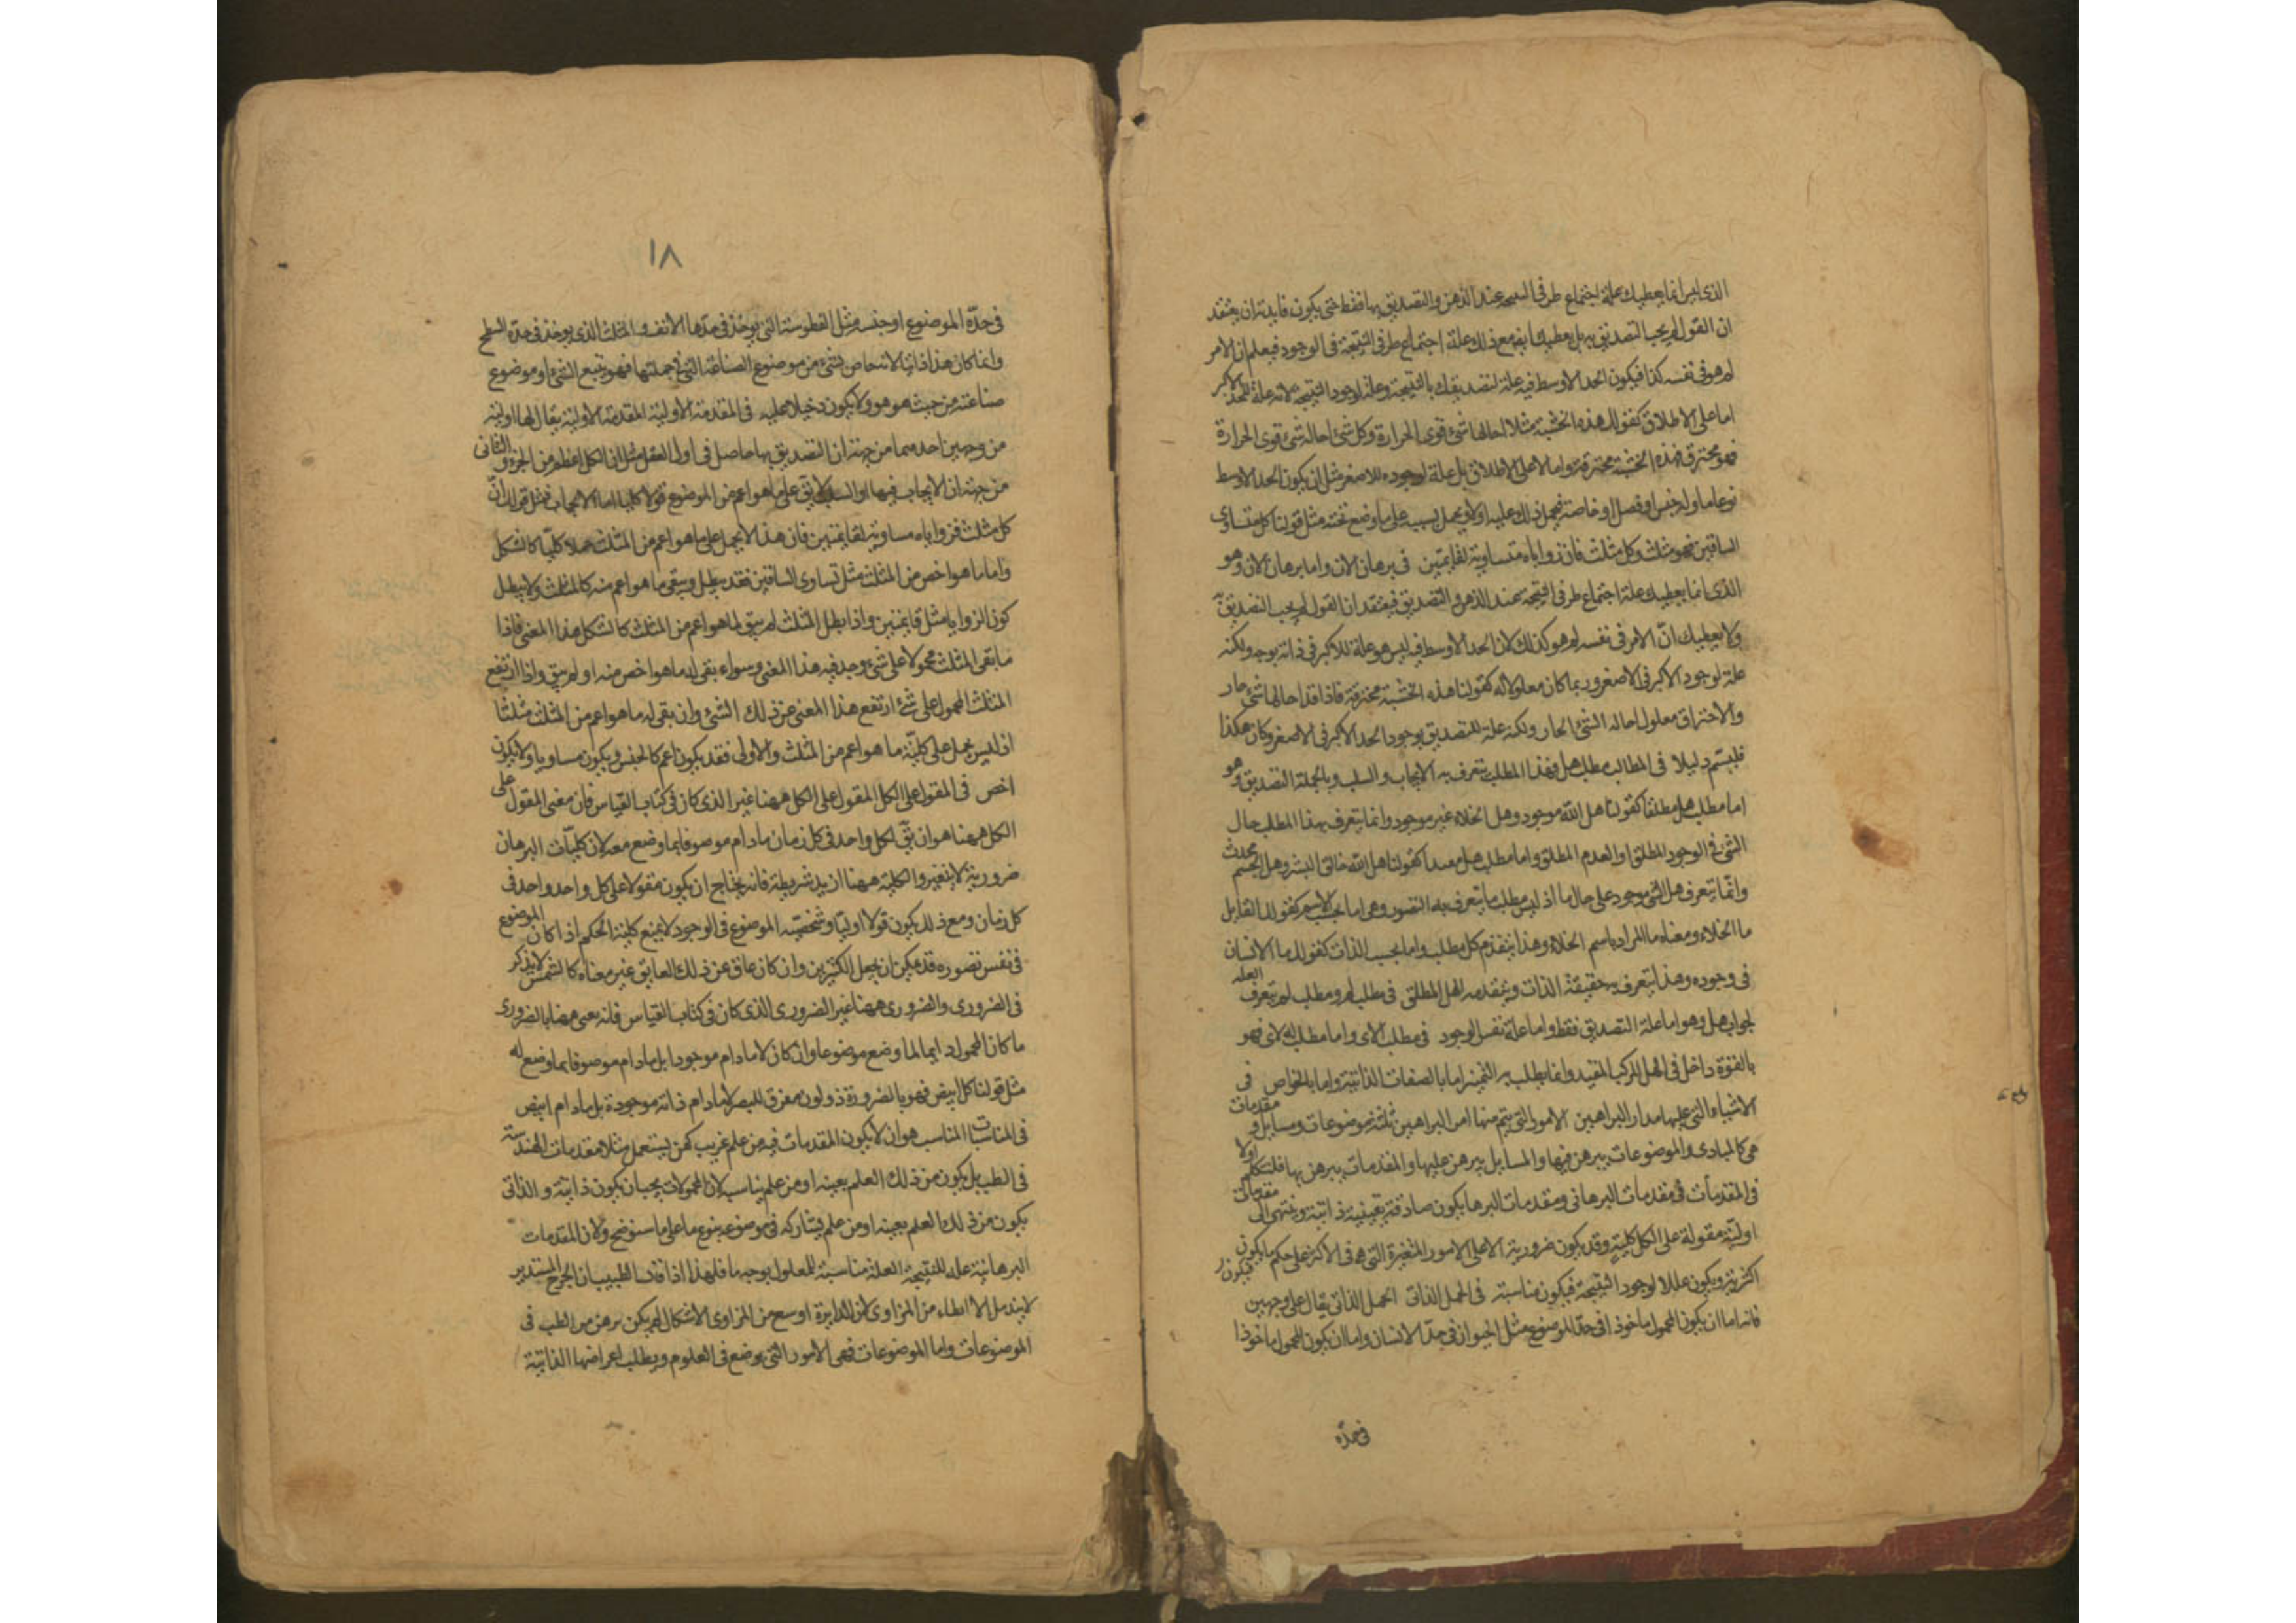 الذى ليس انما يعطيك علة اجتماع طرفى النتيجة عند الذهن والتصديق بها فقط حتى يكون فايدته ان يعتقد
ان القول لم يجب التصديق به بل يعطيك ايضا مع ذلك علة اجتماع طرفى النتيجة فى الوجود فيعلم ان الامر
لم هو فى نفسه كذا فيكون الحد الاوسط فيه علة لتصديقك بالنتيجة وعلة لوجود النتيجة لانه علة للحد الاكبر
اما على الاطلاق كقولك هذه الخشبة مثلا احالها شئ قوى الحرارة وكل شئ احاله شئ قوى الحرارة
فهو محترق فهذه الخشبة محترقة واما لا على الاطلاق بل علة لوجوده للاصغر مثل ان يكون الحد الاوسط
نوعا ما وله جنس او فصل او خاصة فيحمل ذلك عليه اولا ويحمل بسببه على ما وضع تحته مثل قولنا كل متساوى
الساقين فهو مثلث وكل مثلث فان زواياه متساوية لقايمتين فى برهان الان واما برهان الان وهو
الذى انما يعطيك علة اجتماع طرفى النتيجة عند الذهن والتصديق فيعتقد ان القول لم يجب التصديق به
ولا يعطيك ان الامر فى نفسه لم هو كذلك لان الحد الاوسط فيه ليس هو علة للاكبر فى ذاته بوجه ولكنه
علة لوجود الاكبر فى الاصغر وربما كان معلولا له كقولنا هذه الخشبة محترقة فاذا قد احالها شئ حار
والاحتراق معلول احالة الشئ الحار ولكنه علة للتصديق بوجود الحد الاكبر فى الاصغر وكان هكذا
فليسم دليلا فى المطالب مطلب هل فهذا المطلب يتعرف به الايجاب والسلب وبالجملة التصديق وهو
اما مطلب هل مطلقا كقولنا هل الله موجود وهل الخلاء غير موجود وانما يتعرف بهذا المطلب حال
الشئ فى الوجود المطلق او العدم المطلق واما مطلب هل مقيدا كقولنا هل الله خالق البشر وهل الجسم محدث
وانما يتعرف هل الشئ موجود على حال ما اذ ليس مطلب ما يتعرف به التصور وهى اما بحسب الاسم كقولك القايل
ما الخلاء ومعناه ما المراد باسم الخلاء وهذا يتقدم كل مطلب واما بحسب الذات كقولك ما الانسان
فى وجوده وهذا يتعرف به حقيقة الذات ويتقدمه الهل المطلق فى مطلب لم ومطلب لم يتعرف العلة
لجواب هل وهو اما علة التصديق فقط واما علة نفس الوجود فى مطلب الاى واما مطلب الاى فهو
بالقوة داخل فى الهل المركب المقيد وانما يطلب به التميز اما بالصفات الذاتية واما بالخواص فى
الاشياء التى عليها مدار البراهين الامور التى يتم منها امر البراهين ثلثة موضوعات ومسايل ومقدمات
هى كالمبادى والموضوعات يبرهن فيها والمسايل يبرهن عليها والمقدمات يبرهن بها فلنتكلم اولا
فى المقدمات فى مقدمات البرهانى ومقدمات البرهان يكون صادقة يقينية ذاتية وينتهى الى مقدمات
اولية مقولة على الكل كلية وقد يكون ضرورية الا على الامور المتغيرة التى هى فى الاكثر على حكم ما يكون
اكثرية ويكون عللا لوجود النتيجة فيكون مناسبة فى الحمل الذاتى الحمل الذاتى يقال على وجهين
فانه اما ان يكون المحمول ماخوذا فى حد الموضوع مثل الحيوان فى حد الانسان واما ان يكون المحمول ماخوذا
فى حده
١٨
فى حده الموضوع او جنسه مثل الفطوسة التى يوخذ فى حدها الانف والمثلث الذى يوخذ فى حده السطح
وانما كان هذا ذاتيا لانه خاص بشئ من موضوع الصناعة التى فى جملتها فهو يتبع الشئ او موضوع
صناعته من حيث هو هو ولا يكون دخيلا عليه فى المقدمة الاولية المقدمة الاولية يقال لها اولية
من وجهين احدهما من جهة ان التصديق بها حاصل فى اول العقل مثل ان الكل اعظم من الجزء والثانى
من جهة ان الايجاب فيها او السلب لا يق على ما هو اعم من الموضوع قولا كليا اما الايجاب فمثل قولك ان
كل مثلث فزواياه مساوية لقايمتين فان هذا لا يحمل على ما هو اعم من المثلث حملا كليا كالشكل
واما ما هو اخص من المثلث مثل تساوى الساقين فقد يبطل ويبقى ما هو اعم منه كالمثلث ولا يبطل
كون الزوايا مثل قايمتين واذا بطل المثلث لم يبق لما هو اعم من المثلث كالشكل هذا المعنى فاذا
ما بقى المثلث محمولا على شئ وجد فيه هذا المعنى وسواء بقى له ما هو اخص منه او لم يبق واذا ارتفع
المثلث المحمول على شئ ارتفع هذا المعنى عن ذلك الشئ وان بقى له ما هو اعم من المثلث مثلثا
اذ ليس يحمل على كلية ما هو اعم من المثلث والاولى فقد يكون اعم كالجنس ويكون مساويا ولا يكون
اخص فى المقول على الكل المقول على الكل ههنا غير الذى كان فى كتاب القياس فان معنى المقول على
الكل ههنا هو ان يق لكل واحد فى كل زمان ما دام موصوفا بما وضع معه لان كليات البرهان
ضرورية لا يتغير والكلية ههنا ازيد شريطة فانه يحتاج ان يكون مقولا على كل واحد واحد فى
كل زمان ومع ذلك يكون قولا اوليا وشخصية الموضوع فى الوجود لا يمنع كلية الحكم اذا كان الموضوع
فى نفس تصوره قد يمكن ان يجعل الكثيرين وان كان عاق عن ذلك العايق غير معناه كالشمس لا يذكر
فى الضرورى والضرورى ههنا غير الضرورى الذى كان فى كتاب القياس فانه يعنى ههنا بالضرورى
ما كان المحمول دايما لما وضع موضوعا وان كان لا ما دام موجودا بل ما دام موصوفا بما وضع له
مثل قولنا كل ابيض فهو بالضرورة ذو لون مفرق للبصر لا ما دام ذاته موجودة بل ما دام ابيض
فى المناسبات المناسب هو ان لا يكون المقدمات فيه من علم غريب كمن يستعمل مثلا مقدمات الهندسة
فى الطب بل يكون من ذلك العلم بعينه او من علم يناسبه لان المحمولات يجب ان يكون ذاتية والذاتى
يكون من ذلك العلم بعينه او من علم يشاركه فى موضوعه بنوع ما على ما سنوضح ولان المقدمات
البرهانية علة للنتيجة العلة مناسبة للمعلول بوجه ما فلهذا اذا قال الطبيب ان الجرح المستدير
لا يندمل الا ابطاء من المزاوى لان الدايرة اوسع من المزاوى الاشكال لم يكن برهن من الطب فى
الموضوعات واما الموضوعات فهى الامور التى يوضع فى العلوم ويطلب اعراضها الذاتية